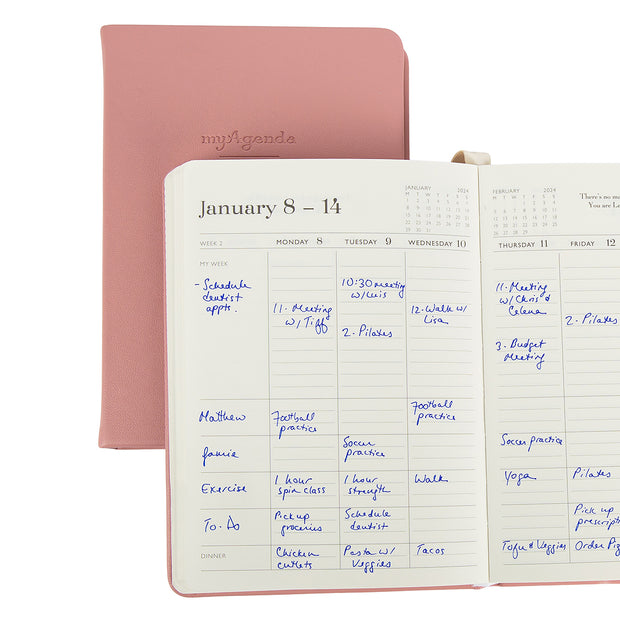 myAgenda
January 8 – 14
JANUARY 2024
FEBRUARY 2024
There's no m
You are L
WEEK 2 MONDAY 8 TUESDAY 9 WEDNESDAY 10 THURSDAY 11 FRIDAY 12
MY WEEK
- Schedule
dentist
appts.
11. Meeting
w/ Tiff
10:30 meeting
w/ Luis
2. Pilates
12. Walk w/
Lisa
11. Meeting
w/ Chris &
Celena
3. Budget
Meeting
2. Pilates
Matthew
Football
practice
Football
practice
Jamie
Soccer
practice
Soccer practice
Exercise
1 hour
spin class
1 hour
strength
Walk
Yoga
Pilates
To-Do
Pick up
groceries
Schedule
dentist
Pick up
prescript
DINNER
Chicken
cutlets
Pasta w/
Veggies
Tacos
Tofu & Veggies
Order Piz